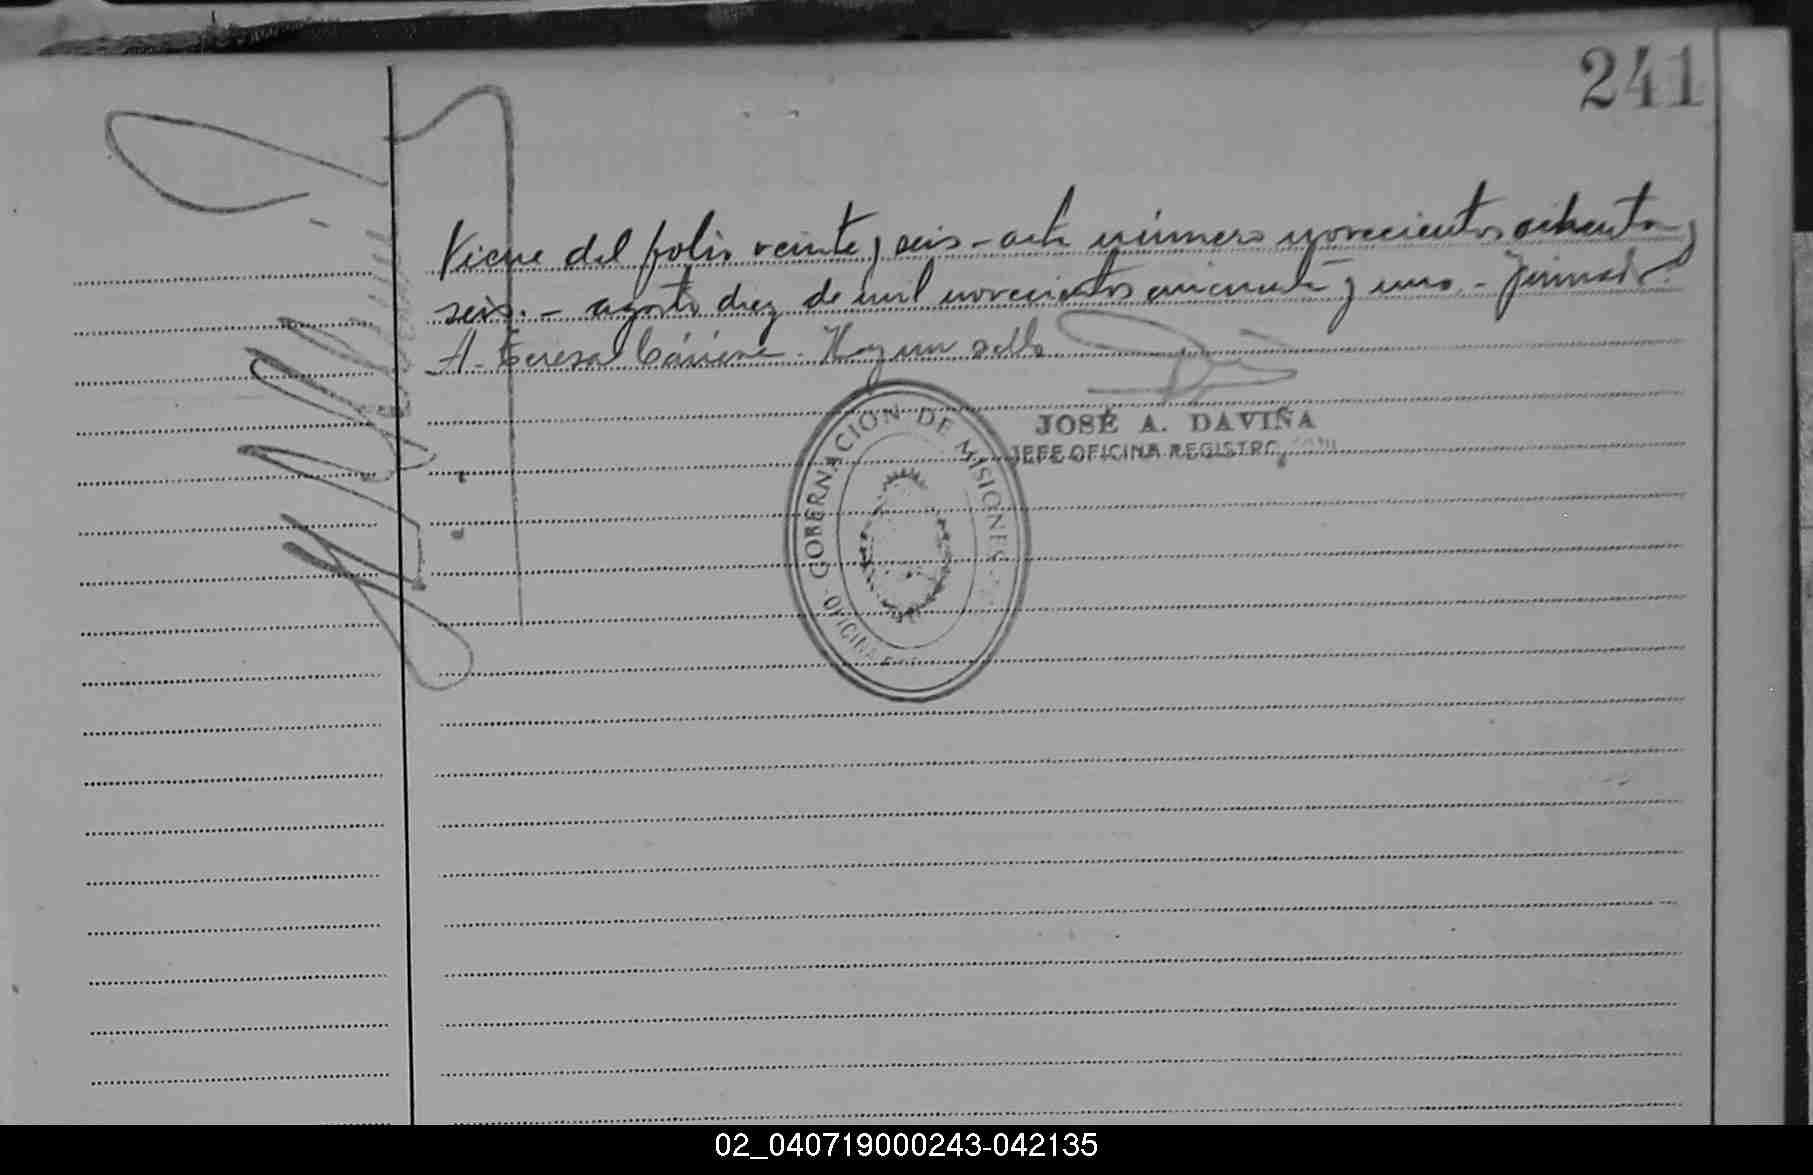 241
Viene del folio veinte y seis - acta número novecientos ochenta y
seis. - agosto diez de mil novecientos cincuenta y uno - Firmado:
A. Teresa Hay un sello
JOSÉ A. DAVIÑA
JEFE OFICINA REGISTRO
GOBERNACIÓN DE MISIONES
OFICINA
02_040719000243-042135